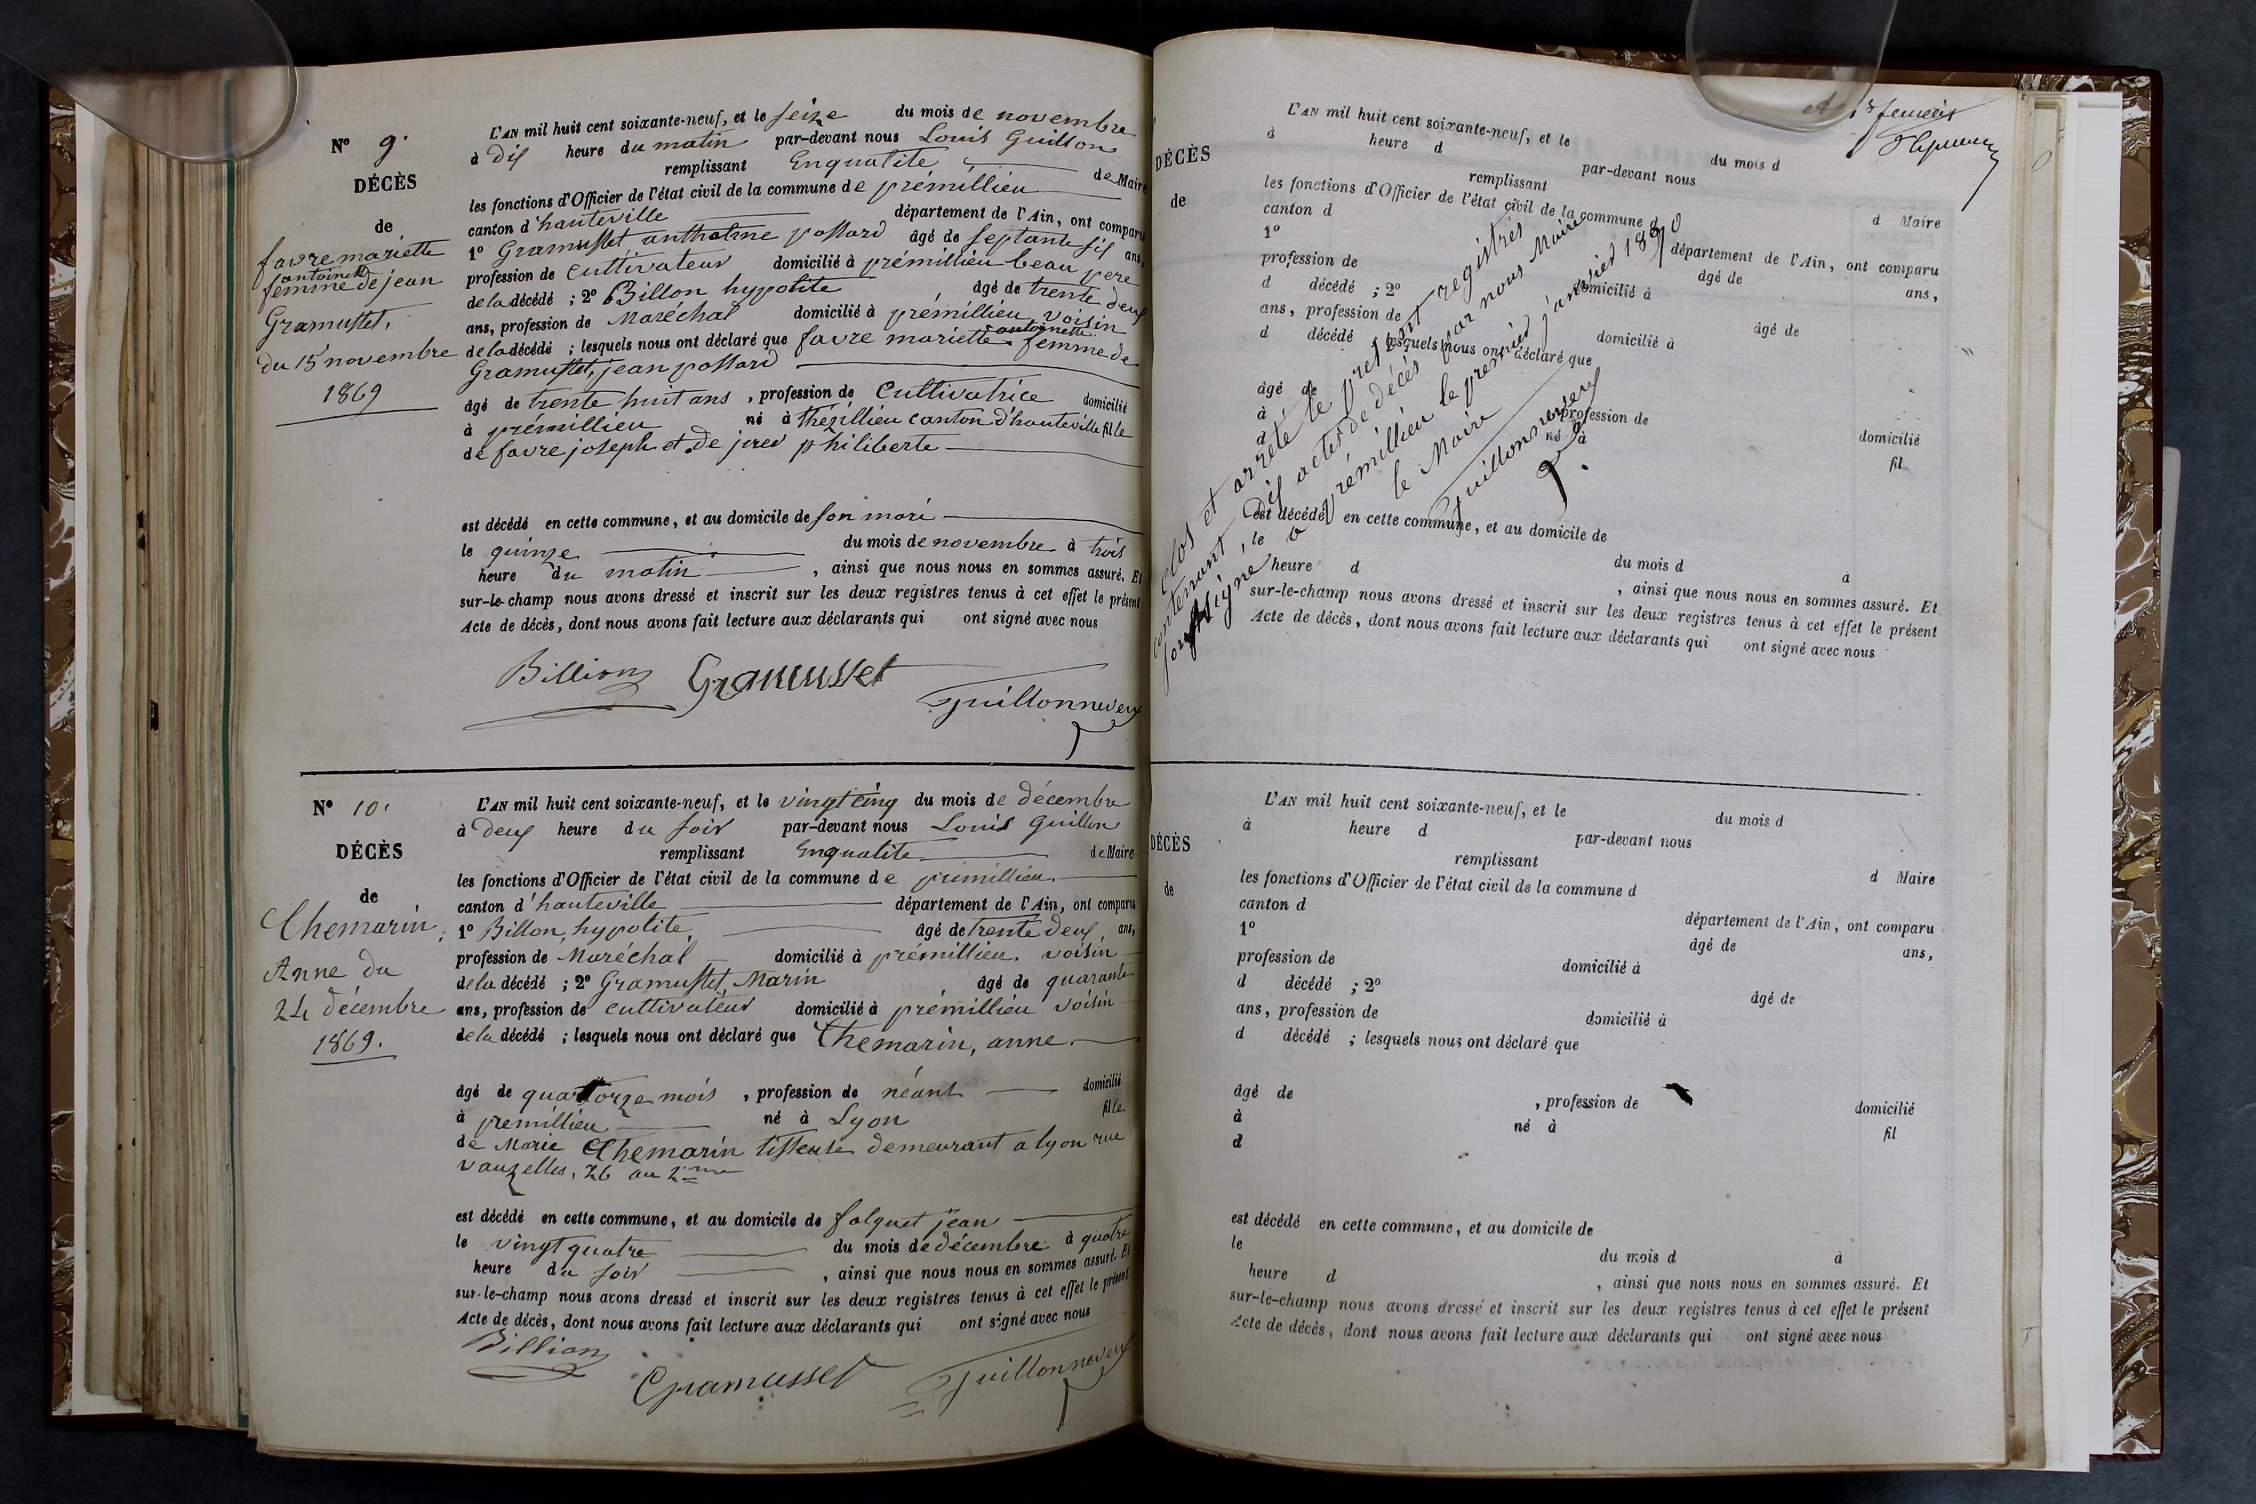 N° 9.
DÉCÈS
de
favre mariette
antoinette
femme de jean
Gramusset,
du 15 novembre
1869
L'AN mil huit cent soixante-neuf, et le seize du mois de novembre
à dix heure du matin par-devant nous Louis Guillon
remplissant Enqualité de Maire
les fonctions d'Officier de l'état civil de la commune de prémillieu
canton d'hauteville département de l'Ain, ont comparu
1° Gramusset anthelme possard âgé de septante six ans,
profession de Cultivateur domicilié à prémillieu beau pere
de la décédé ; 2° Billon hypolite âgé de trente deux
ans, profession de Maréchal domicilié à prémillieu voisin
de la décédé ; lesquels nous ont déclaré que favre mariette antoinette femme de
Gramusset, jean possard
âgé de trente huit ans, profession de Cultivatrice domicilié
à prémillieu né à thézillieu canton d'hauteville fille
de favre joseph et de jred philiberte
est décédé en cette commune, et au domicile de son mari
le quinze du mois de novembre à trois
heure du matin, ainsi que nous nous en sommes assuré. Et
sur-le-champ nous avons dressé et inscrit sur les deux registres tenus à cet effet le présent
Acte de décès, dont nous avons fait lecture aux déclarants qui ont signé avec nous
Billion Gramusset Guillonneveux
N° 10.
DÉCÈS
de
Chemarin,
Anne du
24 décembre
1869.
L'AN mil huit cent soixante-neuf, et le vingt cinq du mois de décembre
à deux heure du soir par-devant nous Louis Guillon
remplissant Enqualité de Maire
les fonctions d'Officier de l'état civil de la commune de prémillieu
canton d'hauteville département de l'Ain, ont comparu
1° Billon, hypolite, âgé de trente deux ans,
profession de Maréchal domicilié à prémillieu. voisin
de la décédé ; 2° Gramusset, Marin âgé de quarante
ans, profession de cultivateur domicilié à prémillieu voisin
de la décédé ; lesquels nous ont déclaré que Chemarin, anne.
âgé de quatorze mois, profession de néant domicilié
à premillieu né à Lyon fille
de Marie Chemarin tisseuse demeurant a lyon rue
vauzelles, 26 au 2me
est décédé en cette commune, et au domicile de folquet jean
le vingt quatre du mois de décembre à quatre
heure du soir, ainsi que nous nous en sommes assuré. Et
sur-le-champ nous avons dressé et inscrit sur les deux registres tenus à cet effet le présent
Acte de décès, dont nous avons fait lecture aux déclarants qui ont signé avec nous
Billion
Gramusset Guillonneveux
DÉCÈS
de
L'AN mil huit cent soixante-neuf, et le du mois d
à heure d par-devant nous
remplissant d Maire
les fonctions d'Officier de l'état civil de la commune d
canton d département de l'Ain, ont comparu
1° âgé de ans,
profession de domicilié à
d décédé ; 2° âgé de
ans, profession de domicilié à
d décédé ; lesquels nous ont déclaré que
âgé de , profession de domicilié
à né à fil
d
est décédé en cette commune, et au domicile de
le du mois d à
heure d , ainsi que nous nous en sommes assuré. Et
sur-le-champ nous avons dressé et inscrit sur les deux registres tenus à cet effet le présent
Acte de décès, dont nous avons fait lecture aux déclarants qui ont signé avec nous
Clos et arrêté le present registres
contenant dix actes de décès par nous Maire
soussigné à prémillieu le premier janvier 1870
le Maire
Guillonneveux
DÉCÈS
de
L'AN mil huit cent soixante-neuf, et le du mois d
à heure d par-devant nous
remplissant d Maire
les fonctions d'Officier de l'état civil de la commune d
canton d département de l'Ain, ont comparu
1° âgé de ans,
profession de domicilié à
d décédé ; 2° âgé de
ans, profession de domicilié à
d décédé ; lesquels nous ont déclaré que
âgé de , profession de domicilié
à né à fil
d
est décédé en cette commune, et au domicile de
le du mois d à
heure d , ainsi que nous nous en sommes assuré. Et
sur-le-champ nous avons dressé et inscrit sur les deux registres tenus à cet effet le présent
Acte de décès, dont nous avons fait lecture aux déclarants qui ont signé avec nous